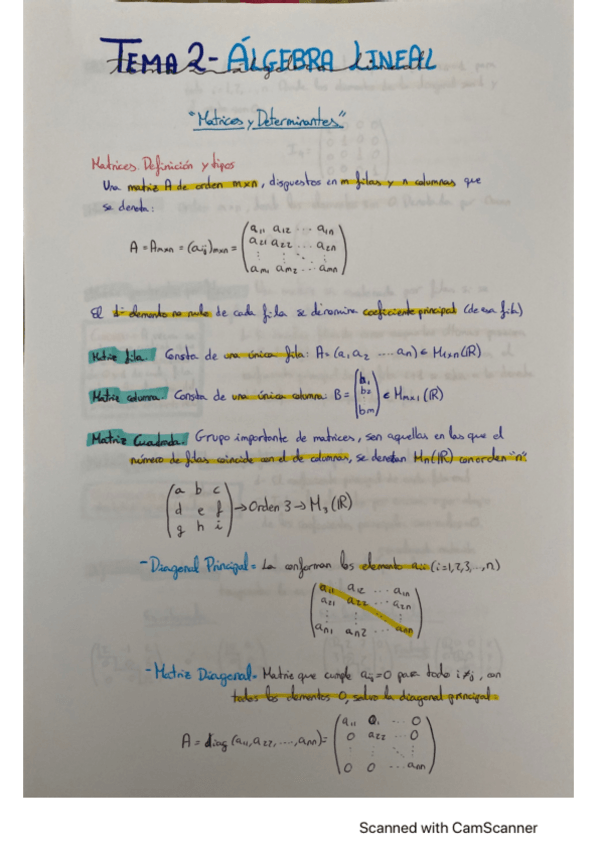 TEMA 2 - ÁLGEBRA LINEAL
"Matrices y Determinantes"
Matrices. Definición y tipos
Una matriz A de orden mxn, dispuestos en m filas y n columnas que
se denota:
A = Amxn = (aij)mxn = (a11 a12 ... a1n
a21 a22 ... a2n
⋮ ⋮ ⋱ ⋮
am1 am2 ... amn)
El 1er elemento no nulo de cada fila se denomina coeficiente principal (de esa fila)
Matriz fila. Consta de una única fila: A = (a1 a2 ... an) ∈ M1xn (ℝ)
Matriz columna. Consta de una única columna: B = (b1
b2
bm) ∈ Mmx1 (ℝ)
Matriz Cuadrada. Grupo importante de matrices, son aquellas en las que el
número de filas coincide con el de columnas, se denotan Mn(ℝ) con orden "n".
(a b c
d e f
g h i) → Orden 3 → M3 (ℝ)
- Diagonal Principal = La conforman los elemento aii (i=1,2,3,...,n)
(a11 a12 ... a1n
a21 a22 ... a2n
⋮ ⋮ ⋱ ⋮
an1 an2 ... ann)
- Matriz Diagonal = Matriz que cumple aij = 0 para todo i≠j, con
todos los elementos 0, salvo la diagonal principal:
A = diag (a11, a22, ..., ann) = (a11 0 ... 0
0 a22 ... 0
⋮ ⋮ ⋱ ⋮
0 0 ... ann)
Scanned with CamScanner